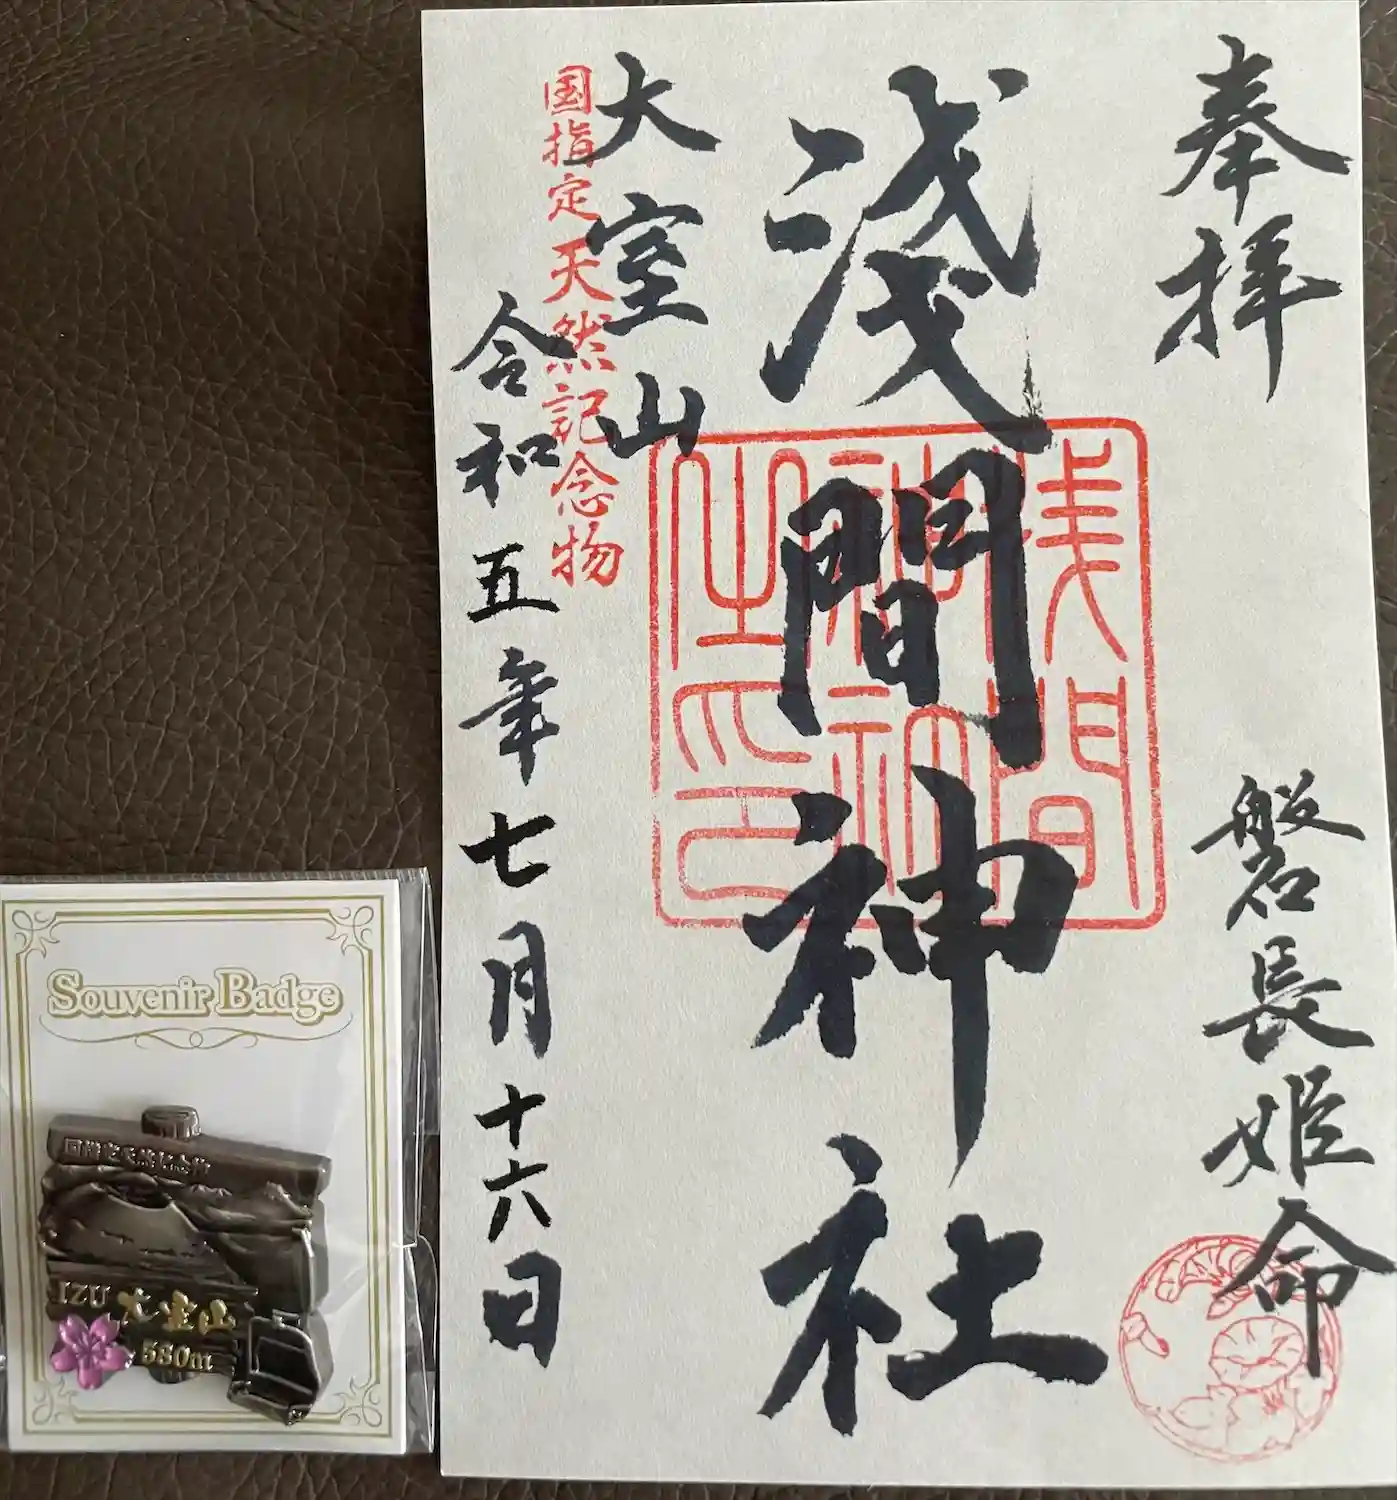 奉拝
磐長姫命
淺間神社
浅間
神社
之印
大室山
国指定天然記念物
令和五年七月十六日
Souvenir Badge
国指定天然記念物
IZU 大室山
580m